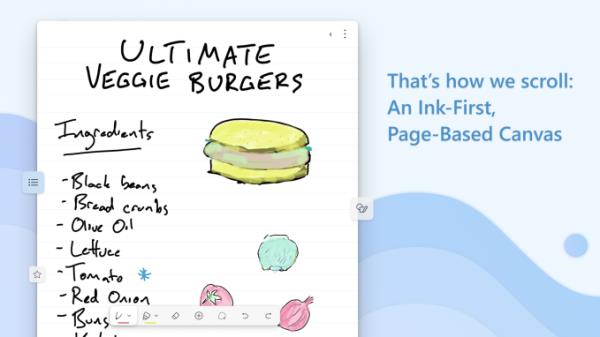 ULTIMATE
VEGGIE BURGERS
Ingredients
- Black beans
- Bread crumbs
- Olive Oil
- Lettuce
- Tomato *
- Red Onion
- Buns
That's how we scroll:
An Ink-First,
Page-Based Canvas